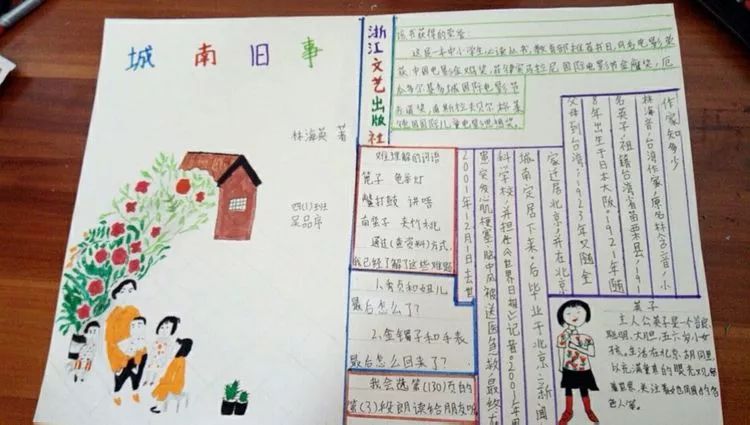 城南旧事
林海英 著
四(1)班
吴品序
浙江文艺出版社
该书获得的荣誉:
这是一本中小学生必读丛书,教育部推荐书目,同名电影荣
获"中国电影金鸡奖,菲律宾马尼拉国际电影节金鹰奖,厄
瓜多尔基多城国际电影节
难理解的词语
笸子 兔擎灯
蟹打鼓 讲唔
夹竹桃
通过(查资料)方式,
我已经了解了这些难题
1.秀贞和妞儿
最后怎么了?
2.金镯子和手表
最后怎么回来了?
我会选第(130)页的
第(3)段朗读给朋友听
作家知多少
林海音,台湾作家,原名林含音,小
名英子,祖籍台湾省苗栗县,191
8年出生于日本大阪。1921年随
父母到台湾,1923年又随全
家迁居北京,并在北京
城南定居下来。后毕业于北京新闻
科学校,并担任《世界日报》记者。2001年
患突发心肌梗塞、脑中风被送医急救,最终在
2001年12月1日去世
英子
主人公英子是一个
聪明、大胆,五六岁小女
孩。生活在北京胡同里
以充满童真的眼光观
察世界,关注着她周围的各
色人等。